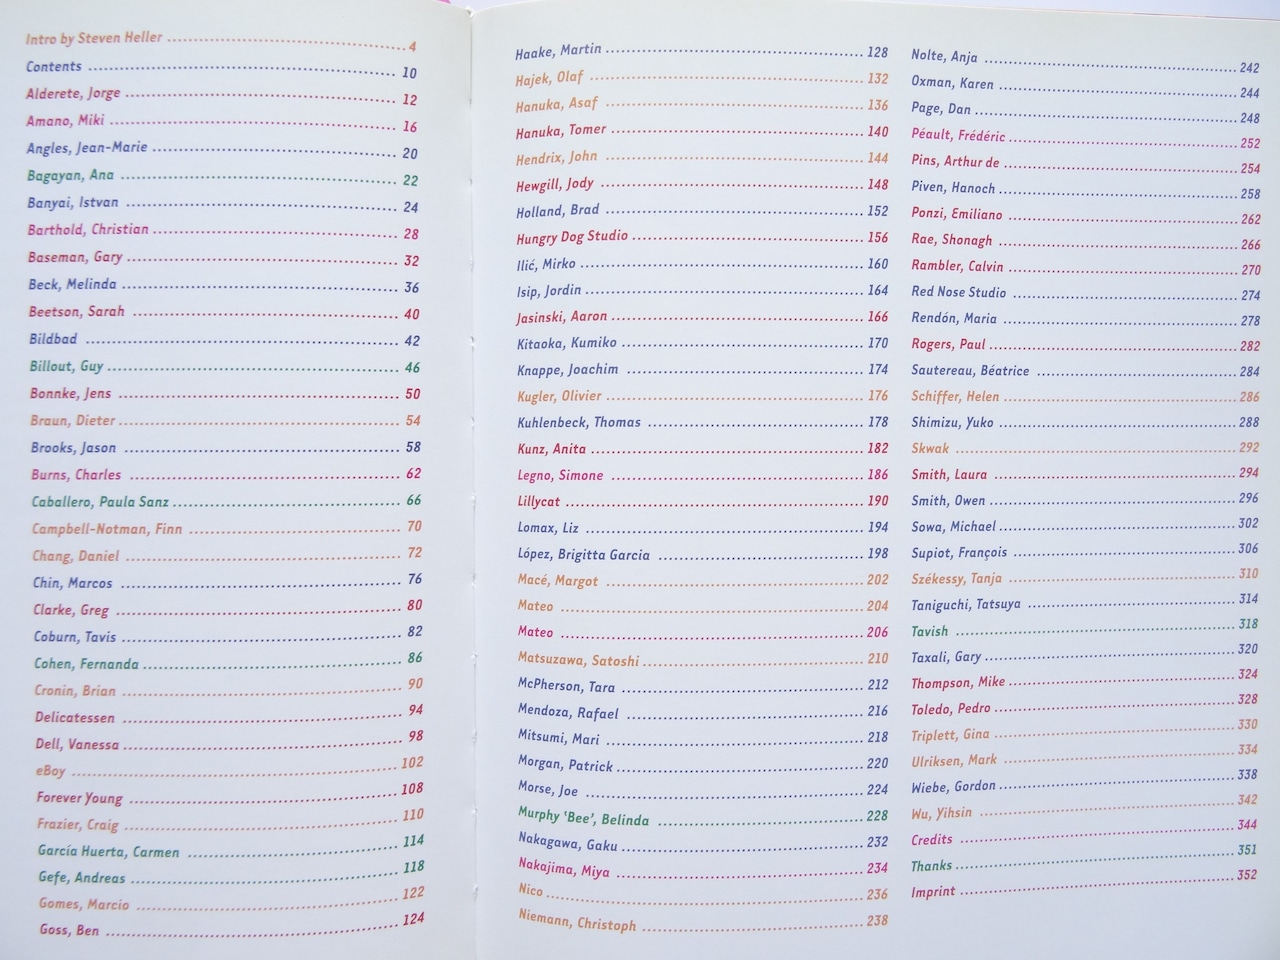 Intro by Steven Heller 4
Contents 10
Alderete, Jorge 12
Amano, Miki 16
Angles, Jean-Marie 20
Bagayan, Ana 22
Banyai, Istvan 24
Barthold, Christian 28
Baseman, Gary 32
Beck, Melinda 36
Beetson, Sarah 40
Bildbad 42
Billout, Guy 46
Bonnke, Jens 50
Braun, Dieter 54
Brooks, Jason 58
Burns, Charles 62
Caballero, Paula Sanz 66
Campbell-Notman, Finn 70
Chang, Daniel 72
Chin, Marcos 76
Clarke, Greg 80
Coburn, Tavis 82
Cohen, Fernanda 86
Cronin, Brian 90
Delicatessen 94
Dell, Vanessa 98
eBoy 102
Forever Young 108
Frazier, Craig 110
García Huerta, Carmen 114
Gefe, Andreas 118
Gomes, Marcio 122
Goss, Ben 124
Haake, Martin 128
Hajek, Olaf 132
Hanuka, Asaf 136
Hanuka, Tomer 140
Hendrix, John 144
Hewgill, Jody 148
Holland, Brad 152
Hungry Dog Studio 156
Ilić, Mirko 160
Isip, Jordin 164
Jasinski, Aaron 166
Kitaoka, Kumiko 170
Knappe, Joachim 174
Kugler, Olivier 176
Kuhlenbeck, Thomas 178
Kunz, Anita 182
Legno, Simone 186
Lillycat 190
Lomax, Liz 194
López, Brigitta Garcia 198
Macé, Margot 202
Mateo 204
Mateo 206
Matsuzawa, Satoshi 210
McPherson, Tara 212
Mendoza, Rafael 216
Mitsumi, Mari 218
Morgan, Patrick 220
Morse, Joe 224
Murphy 'Bee', Belinda 228
Nakagawa, Gaku 232
Nakajima, Miya 234
Nico 236
Niemann, Christoph 238
Nolte, Anja 242
Oxman, Karen 244
Page, Dan 248
Péault, Frédéric 252
Pins, Arthur de 254
Piven, Hanoch 258
Ponzi, Emiliano 262
Rae, Shonagh 266
Rambler, Calvin 270
Red Nose Studio 274
Rendón, Maria 278
Rogers, Paul 282
Sautereau, Béatrice 284
Schiffer, Helen 286
Shimizu, Yuko 288
Skwak 292
Smith, Laura 294
Smith, Owen 296
Sowa, Michael 302
Supiot, François 306
Székessy, Tanja 310
Taniguchi, Tatsuya 314
Tavish 318
Taxali, Gary 320
Thompson, Mike 324
Toledo, Pedro 328
Triplett, Gina 330
Ulriksen, Mark 334
Wiebe, Gordon 338
Wu, Yihsin 342
Credits 344
Thanks 351
Imprint 352